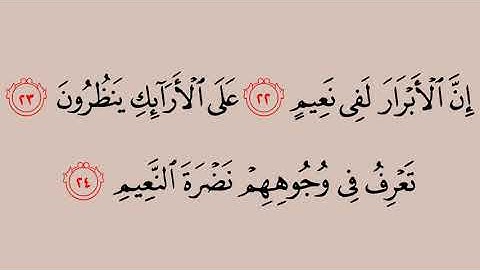 إِنَّ ٱلۡأَبۡرَارَ لَفِي نَعِيمٍ ٢٢ عَلَى ٱلۡأَرَآئِكِ يَنظُرُونَ ٢٣
تَعۡرِفُ فِي وُجُوهِهِمۡ نَضۡرَةَ ٱلنَّعِيمِ ٢٤